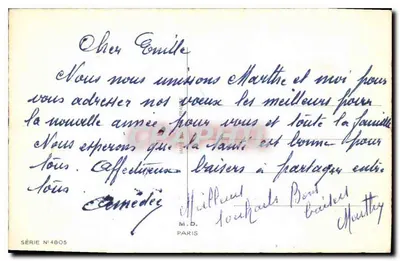 Cher Emille
Nous nous unissons Marthe et moi pour
vous adresser nos vœux les meilleurs pour
la nouvelle année pour vous et toute la famille
Nous esperons que la santé est bonne pour
tous. Affectueux baisers à partager entre
tous.
Amédée
Meilleurs
souhaits Bons
baisers
Marthe
M.D.
PARIS
SÉRIE N° 4605